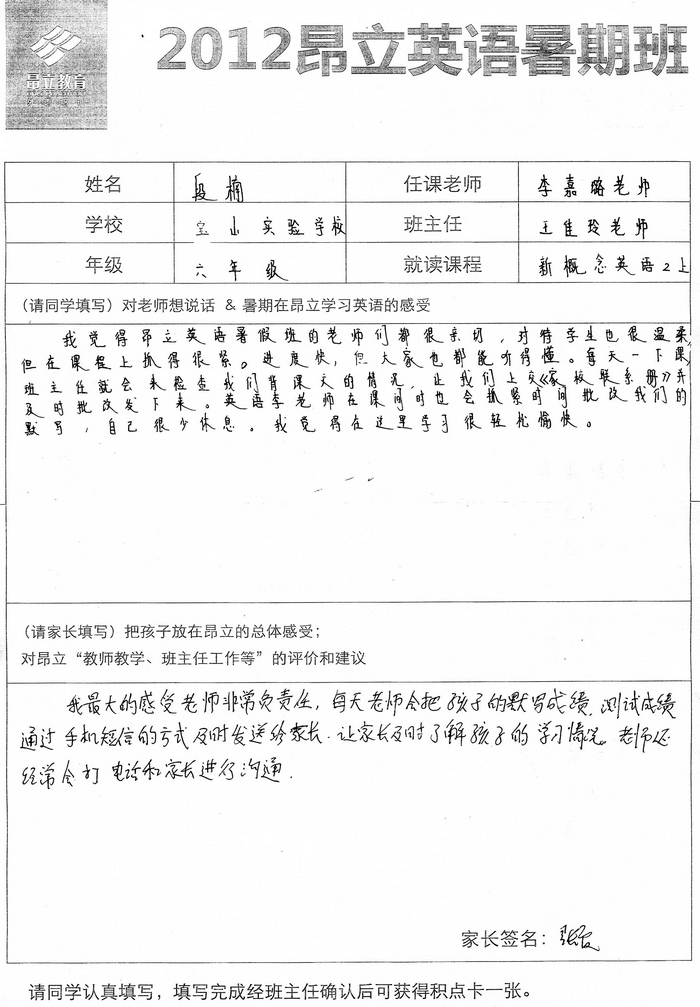 2012昂立英语暑期班
昂立教育
姓名 段楠 任课老师 李嘉璐老师
学校 宝山实验学校 班主任 王佳玲老师
年级 六年级 就读课程 新概念英语2上
(请同学填写)对老师想说话 & 暑期在昂立学习英语的感受
我觉得昂立英语暑假班的老师们都很亲切,对待学生也很温柔,
但在课程上抓得很紧。进度快,但大家也都能听得懂。每天一下课,
班主任就会来检查我们背课文的情况,让我们上交《家校联系册》并
及时批改发下来。英语李老师在课间时也会抓紧时间批改我们的
默写,自己很少休息。我觉得在这里学习很轻松愉快。
(请家长填写)把孩子放在昂立的总体感受;
对昂立“教师教学、班主任工作等”的评价和建议
我最大的感受老师非常负责任,每天老师会把孩子的默写成绩.测试成绩
通过手机短信的方式及时发送给家长.让家长及时了解孩子的学习情况。老师还
经常会打电话和家长进行沟通.
家长签名:
请同学认真填写,填写完成经班主任确认后可获得积点卡一张。